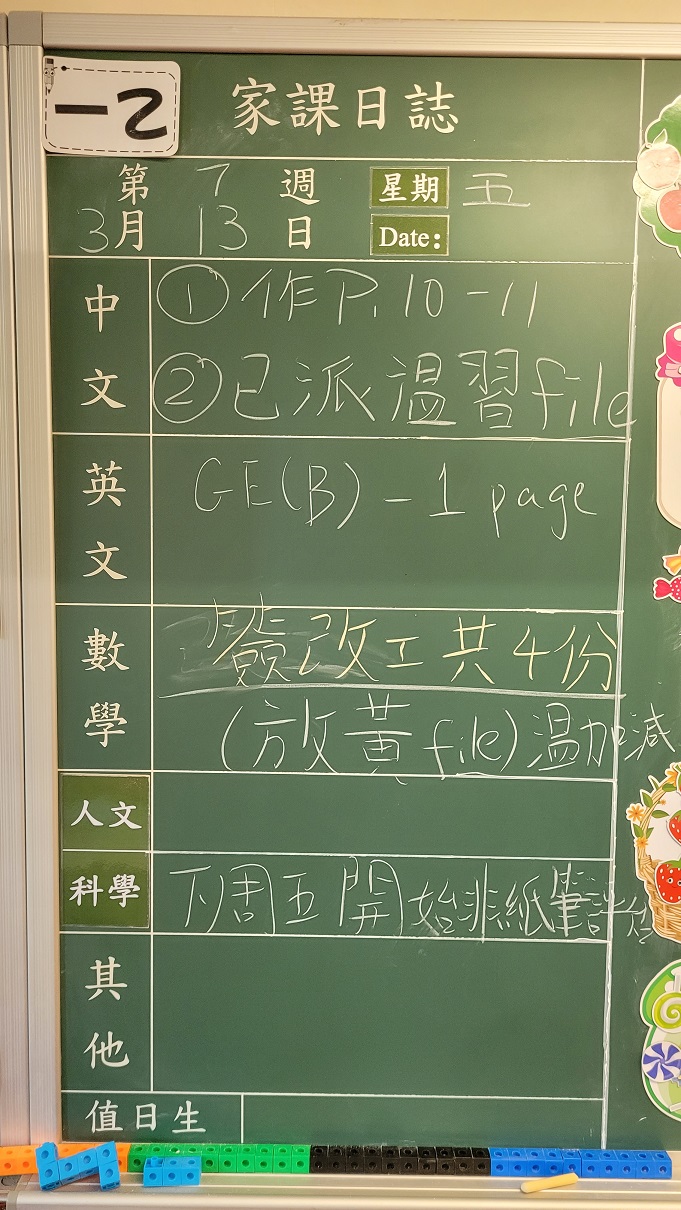 一乙
家課日誌
第 7 週 星期 五
3月 13 日 Date:
中文 ① 作 P. 10 - 11
② 已派溫習 file
英文 GE(B) - 1 page
數學 簽改工共4份
(放黃 file) 溫加減
人文
科學 下周五開始非紙筆評估
其他
值日生